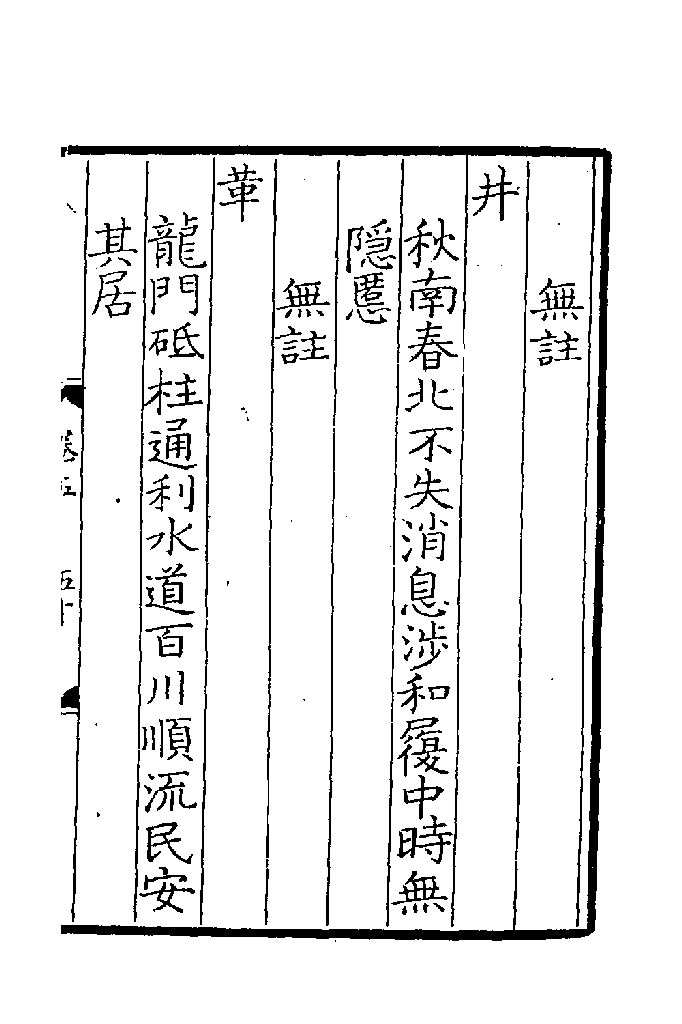 無註
井
秋南春北不失消息涉和履中時無
隠慝
無註
革
龍門砥柱通利水道百川順流民安
其居
卷五
五十